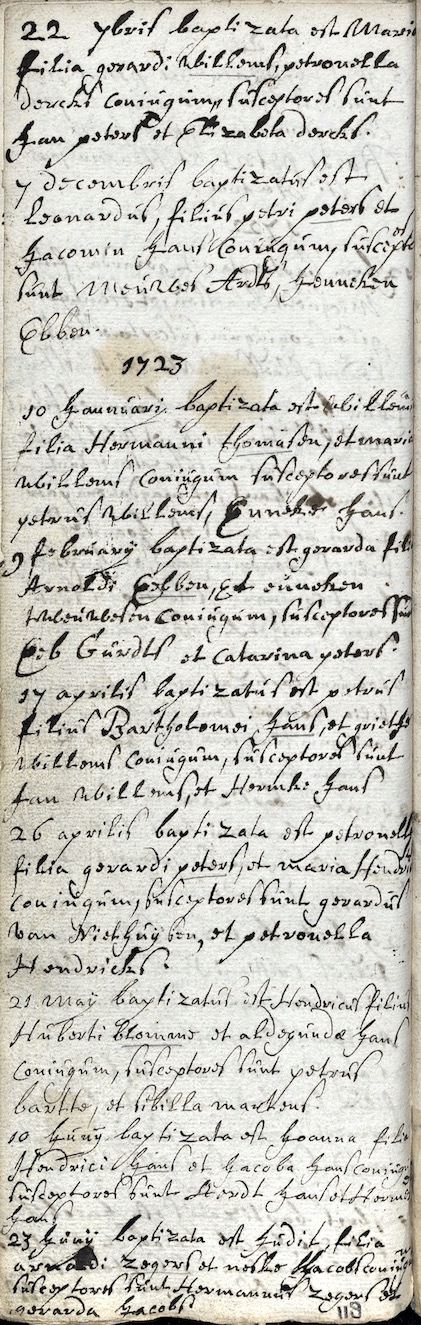 22 7bris baptizata est Maria
filia gerardi willems, petronella
dercks coniugum, susceptores sunt
Jan peters et Elizabeta dercks.
7 decembris baptizatus est
Leonardus, filius petri peters et
Jacomin Jans Coniugum, suscept
sunt Meuwes Ardts, Jenneken
Ebben.
1723
10 Januarij baptizata est willem
filia Hermanni thomassen, et maria
willems coniugum susceptores sunt
petrus willems, Enneke Jans.
9 februarij baptizata est gerarda fili
Arnoldi Ebben, Et enneken
Meuwesen Coniugum, susceptores sun
Geb Gurdts et Catarina peters.
17 aprilis baptizatus est petrus
filius Bartholomei Jans, et grietje
willems Coniugum, susceptores sunt
Jan willems, et Hermke Jans
26 aprilis baptizata est petronella
filia gerardi peters, et maria Hendri
coniugum, susceptores sunt gerardus
van Niethuysen, et petronella
Hendricks.
21 maij baptizatus est Hendricus filius
Huberti blomme et aldegundæ Jans
Coniugum, susceptores sunt petrus
bartte, et sibilla martens.
10 Junij baptizata est Joanna filia
Hendrici Jans et Jacoba Jans coniugu
susceptores sunt Aerdt Jans et Herme
Jans
23 Junij baptizata est Judit, filia
arnoldi zegers et neske Jacobs coniugum
susceptores sunt Hermannus zegers et
gerarda Jacobs
119